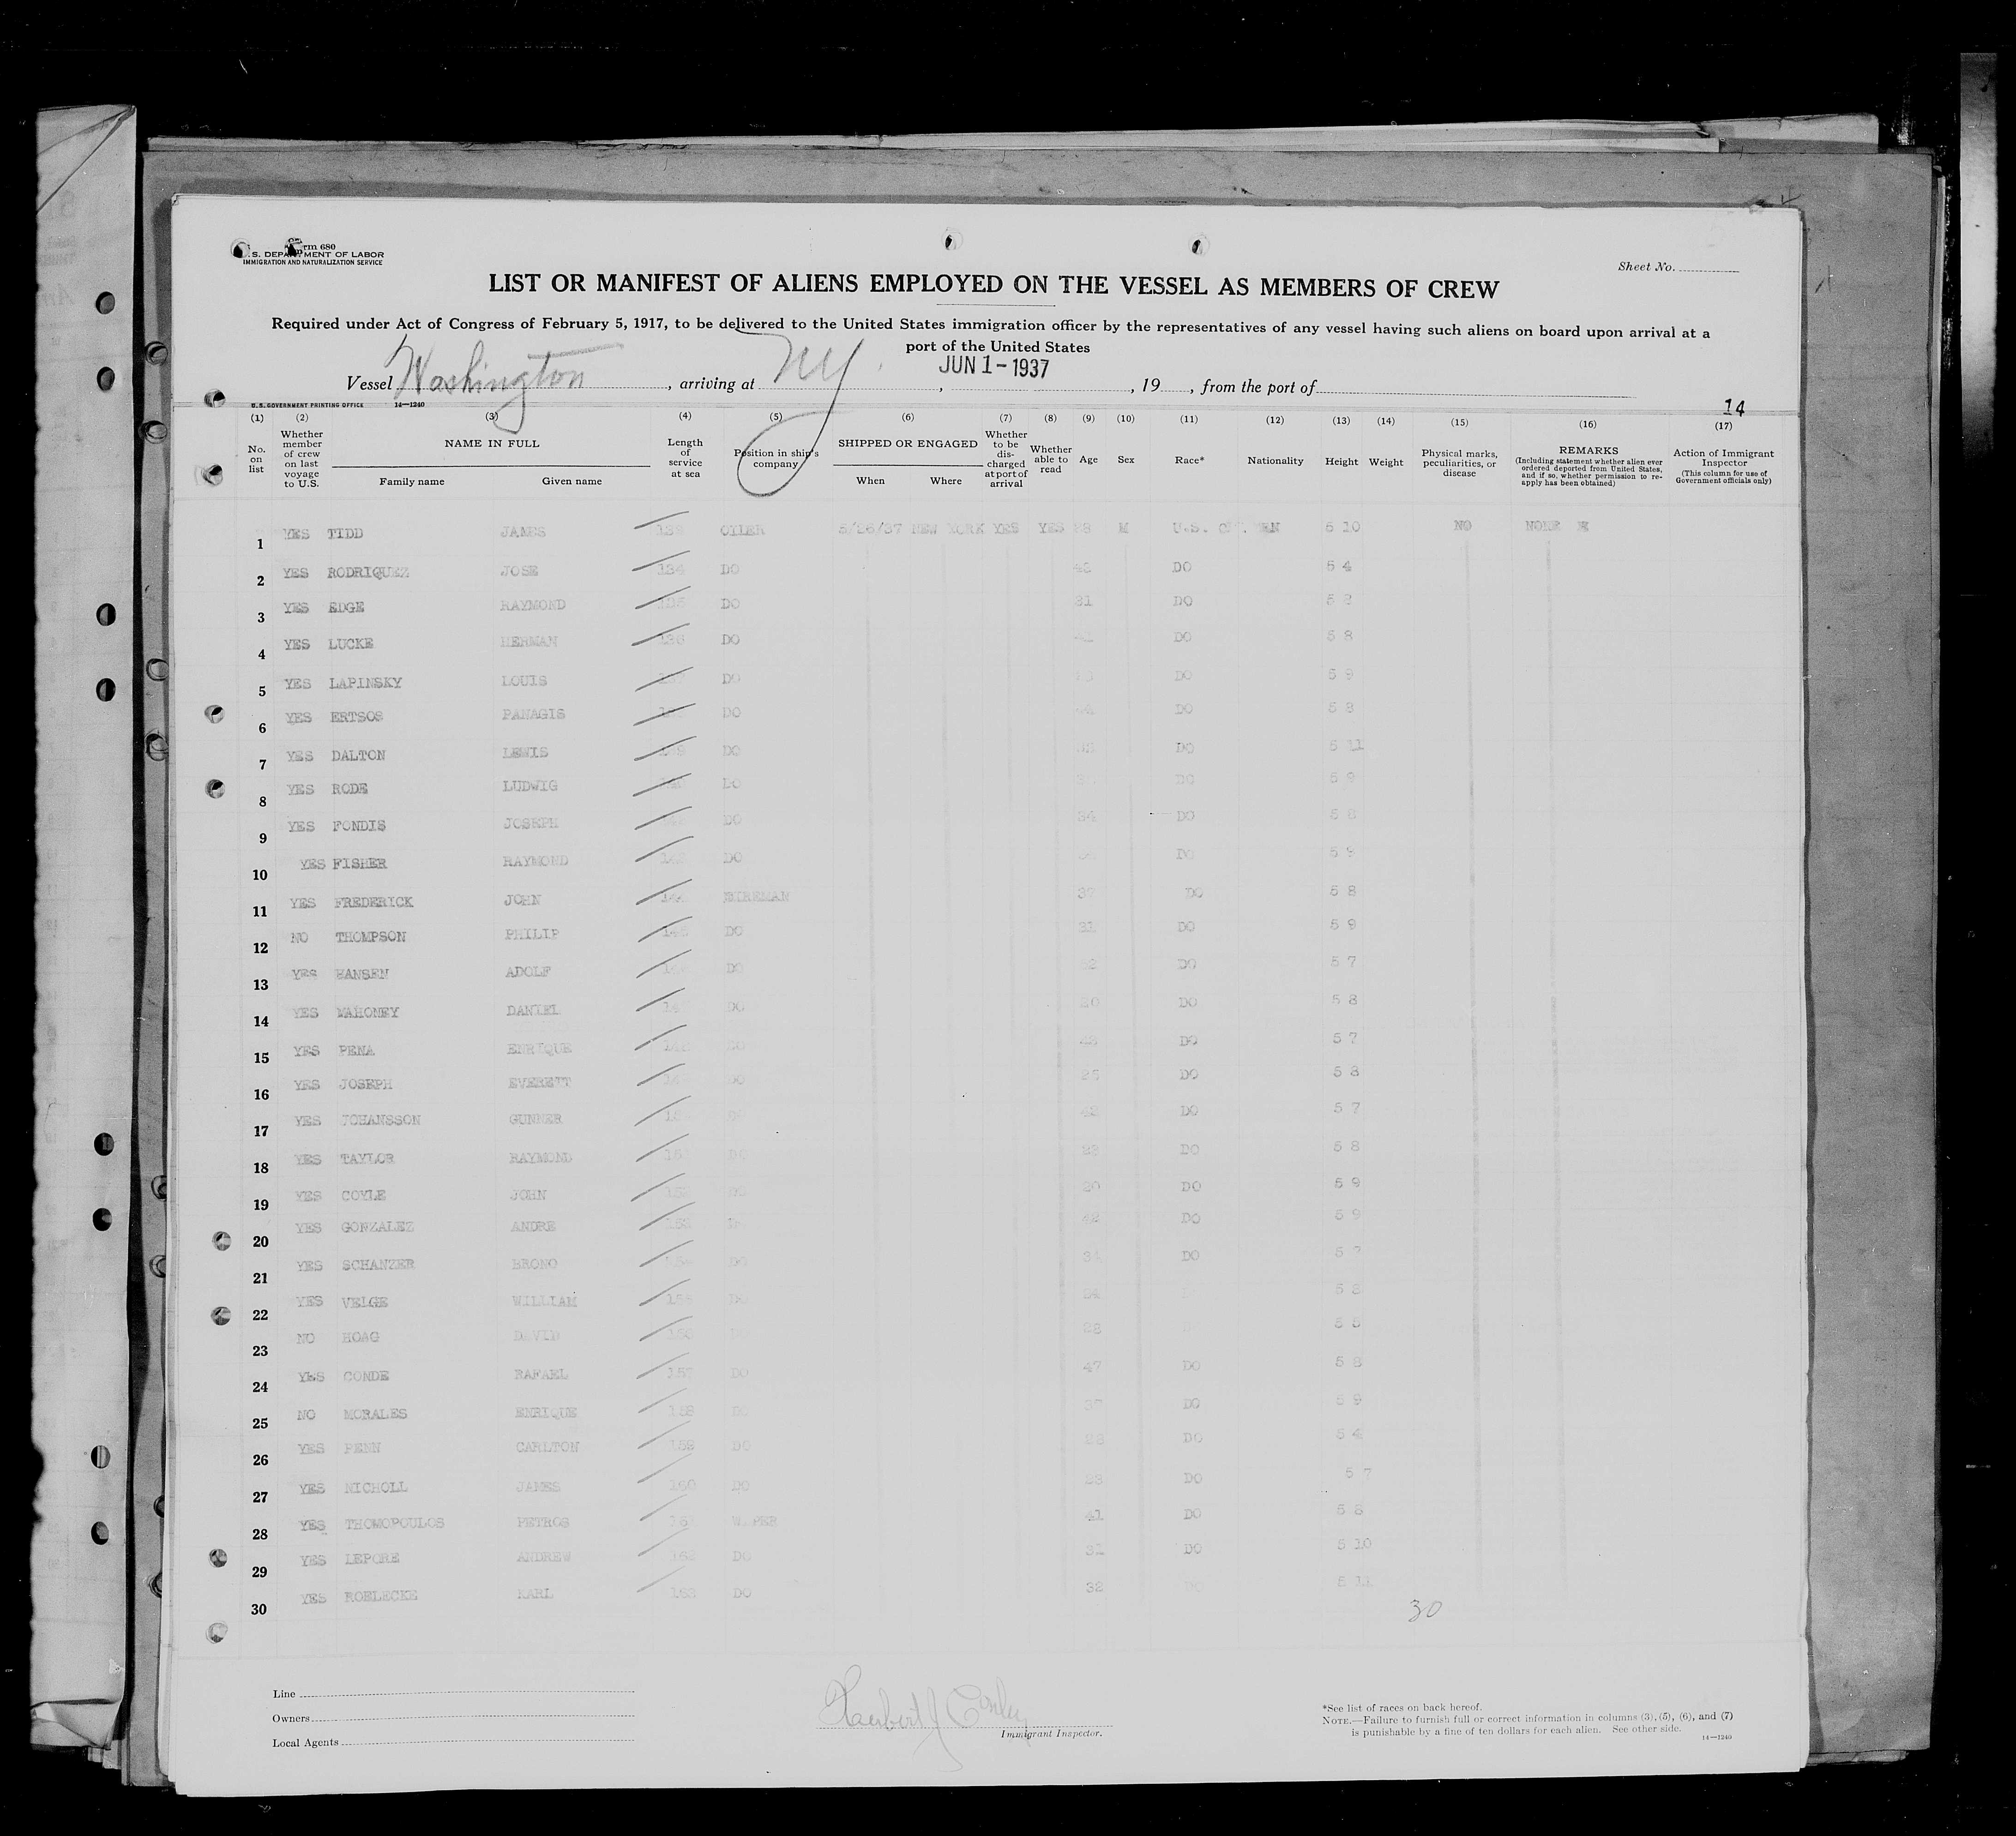 Form 680
U.S. DEPARTMENT OF LABOR
IMMIGRATION AND NATURALIZATION SERVICE
Sheet No.
LIST OR MANIFEST OF ALIENS EMPLOYED ON THE VESSEL AS MEMBERS OF CREW
Required under Act of Congress of February 5, 1917, to be delivered to the United States immigration officer by the representatives of any vessel having such aliens on board upon arrival at a
port of the United States
Vessel Washington, arriving at NY, JUN 1-1937, 19, from the port of
U.S. GOVERNMENT PRINTING OFFICE 14—1240
14
(1) (2) (3) (4) (5) (6) (7) (8) (9) (10) (11) (12) (13) (14) (15) (16) (17)
No. on list
Whether member of crew on last voyage to U.S.
NAME IN FULL
Family name Given name
Length of service at sea
Position in ship's company
SHIPPED OR ENGAGED
When Where
Whether to be discharged at port of arrival
Whether able to read
Age
Sex
Race*
Nationality
Height
Weight
Physical marks, peculiarities, or disease
REMARKS
(Including statement whether alien ever ordered deported from United States, and if so, whether permission to re-apply has been obtained)
Action of Immigrant Inspector
(This column for use of Government officials only)
1 YES TIDD JAMES OILER 5/26/37 NEW YORK YES YES M U.S. 5 10 NO NONE
2 YES RODRIQUEZ JOSE 134 DO DO 5 4
3 YES EDGE RAYMOND DO DO
4 YES LUCKE HERMAN 136 DO DO 5 8
5 YES LAPINSKY LOUIS DO DO 5 9
6 YES ERTSOS PANAGIS DO DO 5 8
7 YES DALTON LEWIS DO DO 5 11
8 YES RODE LUDWIG DO DO 5 9
9 YES FONDIS JOSEPH DO 34 DO 5 8
10 YES FISHER RAYMOND DO DO 5 9
11 YES FREDERICK JOHN 37 DO 5 8
12 NO THOMPSON PHILIP 145 DO 31 DO 5 9
13 YES HANSEN ADOLF DO DO 5 7
14 YES MAHONEY DANIEL DO DO 5 8
15 YES PENA ENRIQUE DO DO 5 7
16 YES JOSEPH EVERETT DO 25 DO 5 8
17 YES JOHANSSON GUNNER DO 5 7
18 YES TAYLOR RAYMOND DO DO 5 8
19 YES COYLE JOHN DO DO 5 9
20 YES GONZALEZ ANDRE 153 DO 5 9
21 YES SCHANZER BRONO DO DO 5 7
22 YES VEIGE WILLIAM 155 DO
23 NO HOAG DAVID
24 YES CONDE RAFAEL 157 DO 47 DO 5 8
25 NO MORALES ENRIQUE 158 DO DO 5 9
26 YES PENN CARLTON 159 DO DO 5 4
27 YES NICHOLL JAMES 160 DO 23 DO 5 7
28 YES THOMOPOULOS PETROS 41 DO 5 8
29 YES LEPORE ANDREW 162 DO DO 5 10
30 YES ROELECKE KARL 163 DO 32 5 11
30
Line
Owners
Local Agents
Herbert J Conley
Immigrant Inspector.
*See list of races on back hereof.
NOTE.—Failure to furnish full or correct information in columns (3), (5), (6), and (7)
is punishable by a fine of ten dollars for each alien. See other side.
14—1240